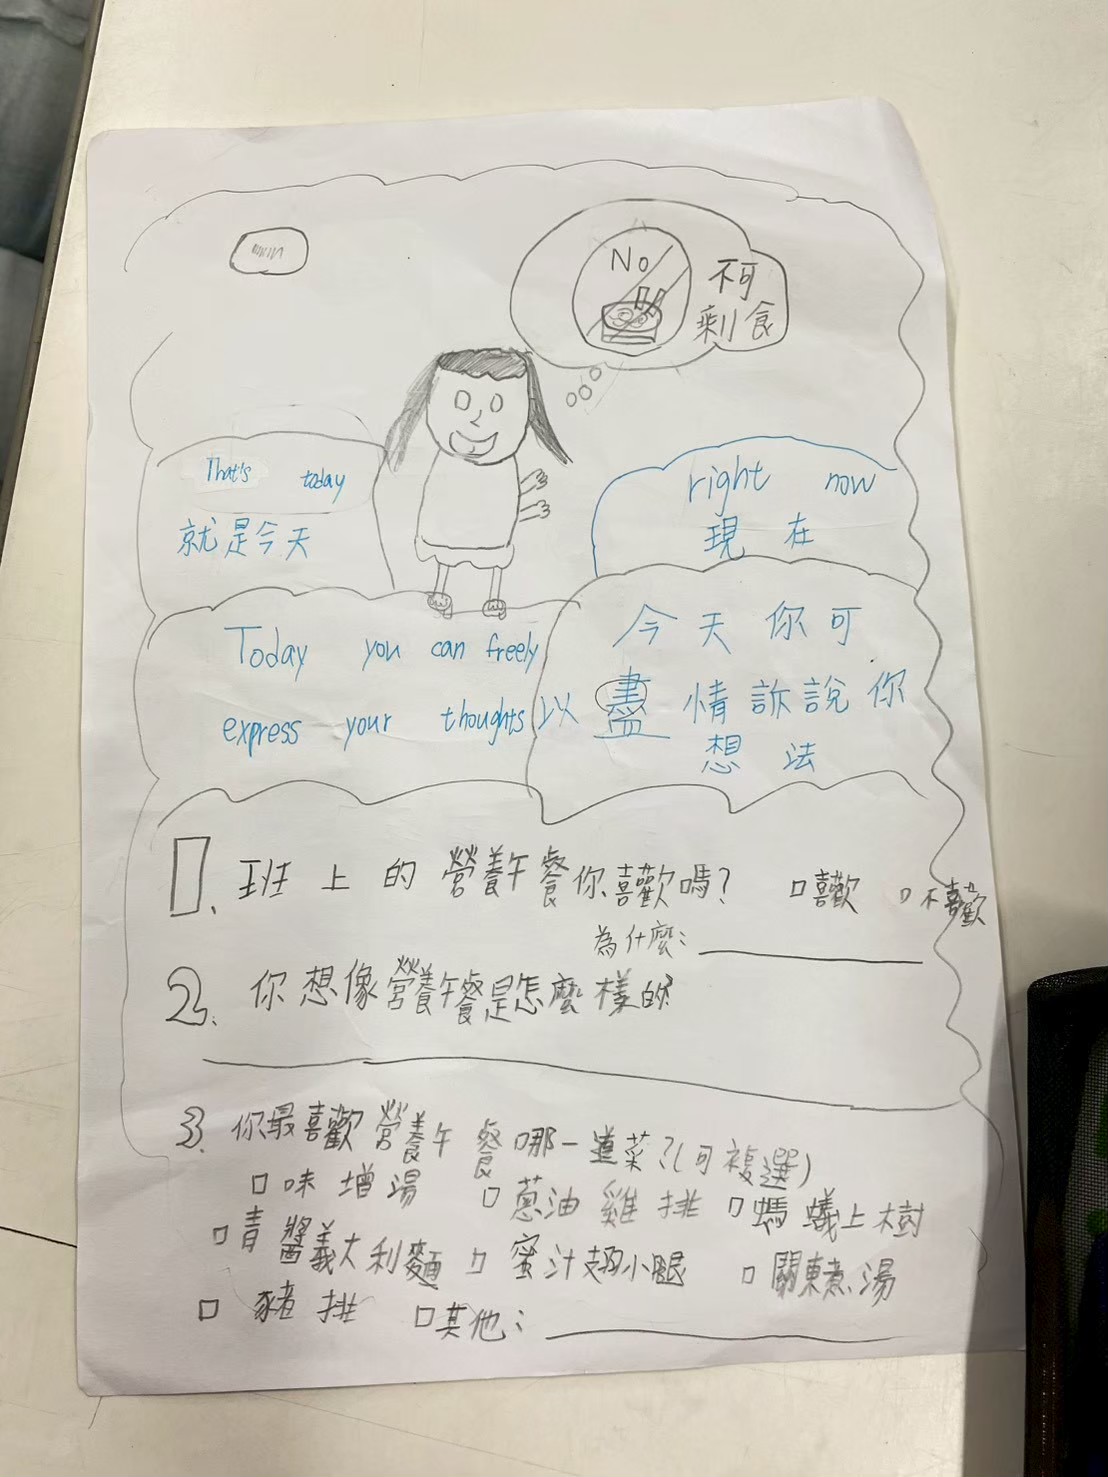 No
不可
剩食
That's today
就是今天
right now
現在
Today you can freely
express your thoughts
今天你可
以盡情訴說你
想法
1. 班上的營養午餐你喜歡嗎? □喜歡 □不喜歡
為什麼:
2. 你想像營養午餐是怎麼樣的?
3. 你最喜歡營養午餐哪一道菜?(可複選)
□味增湯 □蔥油雞排 □螞蟻上樹
□青醬義大利麵 □蜜汁翅小腿 □關東煮湯
□豬排 □其他: